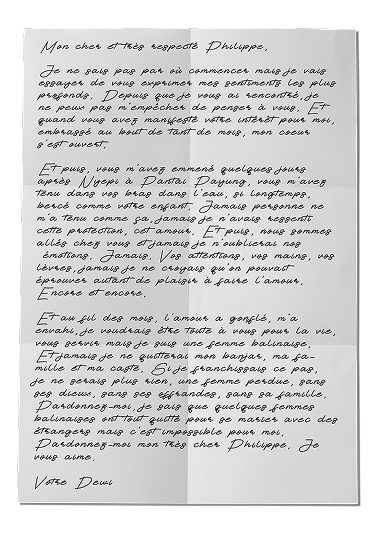 Mon cher et très respecté Philippe,
Je ne sais pas par où commencer mais je vais
essayer de vous exprimer mes sentiments les plus
profonds. Depuis que je vous ai rencontré, je
ne peux pas m'empêcher de penser à vous. Et
quand vous avez manifesté votre intérêt pour moi,
embrassé au bout de tant de mois, mon coeur
s'est ouvert.
Et puis, vous m'avez emmené quelques jours
après Nyepi à Pantai Payung, vous m'avez
tenu dans vos bras dans l'eau, si longtemps,
bercé comme votre enfant. Jamais personne ne
m'a tenu comme ça, jamais je n'avais ressenti
cette protection, cet amour. Et puis, nous sommes
allés chez vous et jamais je n'oublierai nos
émotions. Jamais. Vos attentions, vos mains, vos
lèvres, jamais je ne croyais qu'on pouvait
éprouver autant de plaisir à faire l'amour.
Encore et encore.
Et au fil des mois, l'amour a gonflé, m'a
envahi, je voudrais être toute à vous pour la vie,
vous servir mais je suis une femme balinaise.
Et jamais je ne quitterai mon banjar, ma fa-
mille et ma caste. Si je franchissais ce pas,
je ne serais plus rien, une femme perdue, sans
ses dieux, sans ses offrandes, sans sa famille.
Pardonnez-moi, je sais que quelques femmes
balinaises ont tout quitté pour se marier avec des
étrangers mais c'est impossible pour moi.
Pardonnez-moi mon très cher Philippe. Je
vous aime.
Votre Dewi